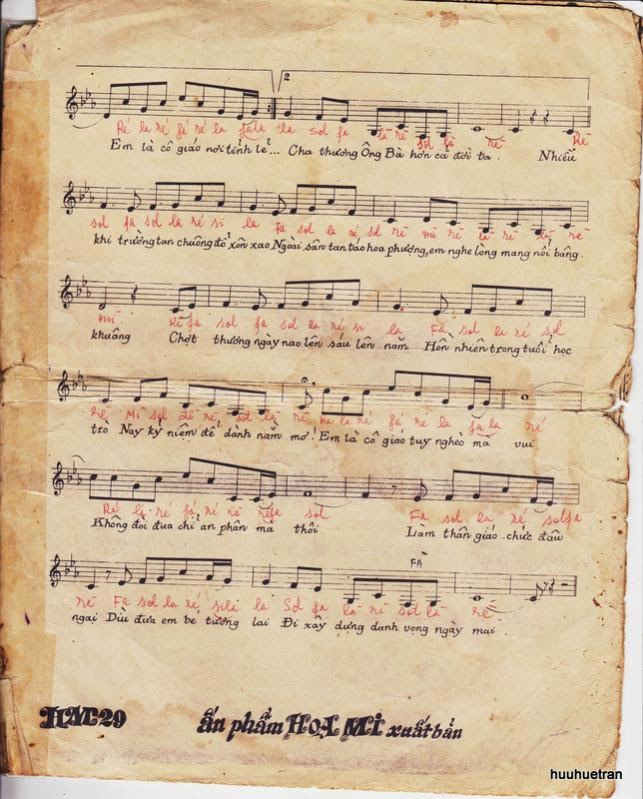 2
Ré la ré fá ré la fala la sol fa la rê sol là rê Rê
Em là cô giáo nơi tỉnh lẻ... Cha thương Ông Bà hơn cả đời ta. Nhiều
sol fa sol la ré si la Fa sol la ré sol rê mi rê là rê là rê
khi trường tan chuông đổ xôn xao Ngoài sân tan tác hoa phượng, em nghe lòng mang nỗi bâng.
mi Rê fa sol fa sol la ré si la Fa sol la ré sol
khuâng Chợt thương ngày nao lên sáu lên năm Hồn nhiên trong tuổi học
rê Mi sol rê sol rê la ré fá ré la fa la ré
trò Nay kỷ niệm để dành nằm mơ! Em là cô giáo tuy nghèo mà vui
Ré ré fá ré rê rê fa sol Fa sol la ré sol fa
Không đòi đua chỉ an phận mà thôi Làm thân giáo chức đâu
FÀ
rê Fa sol la ré sila la Sol fa la rê sol là rê
ngại Dìu đưa em bé tương lai Đi xây dựng danh vọng ngày mai.
HM29 ấn phẩm HOẠ MI xuất bản
huuhuetran